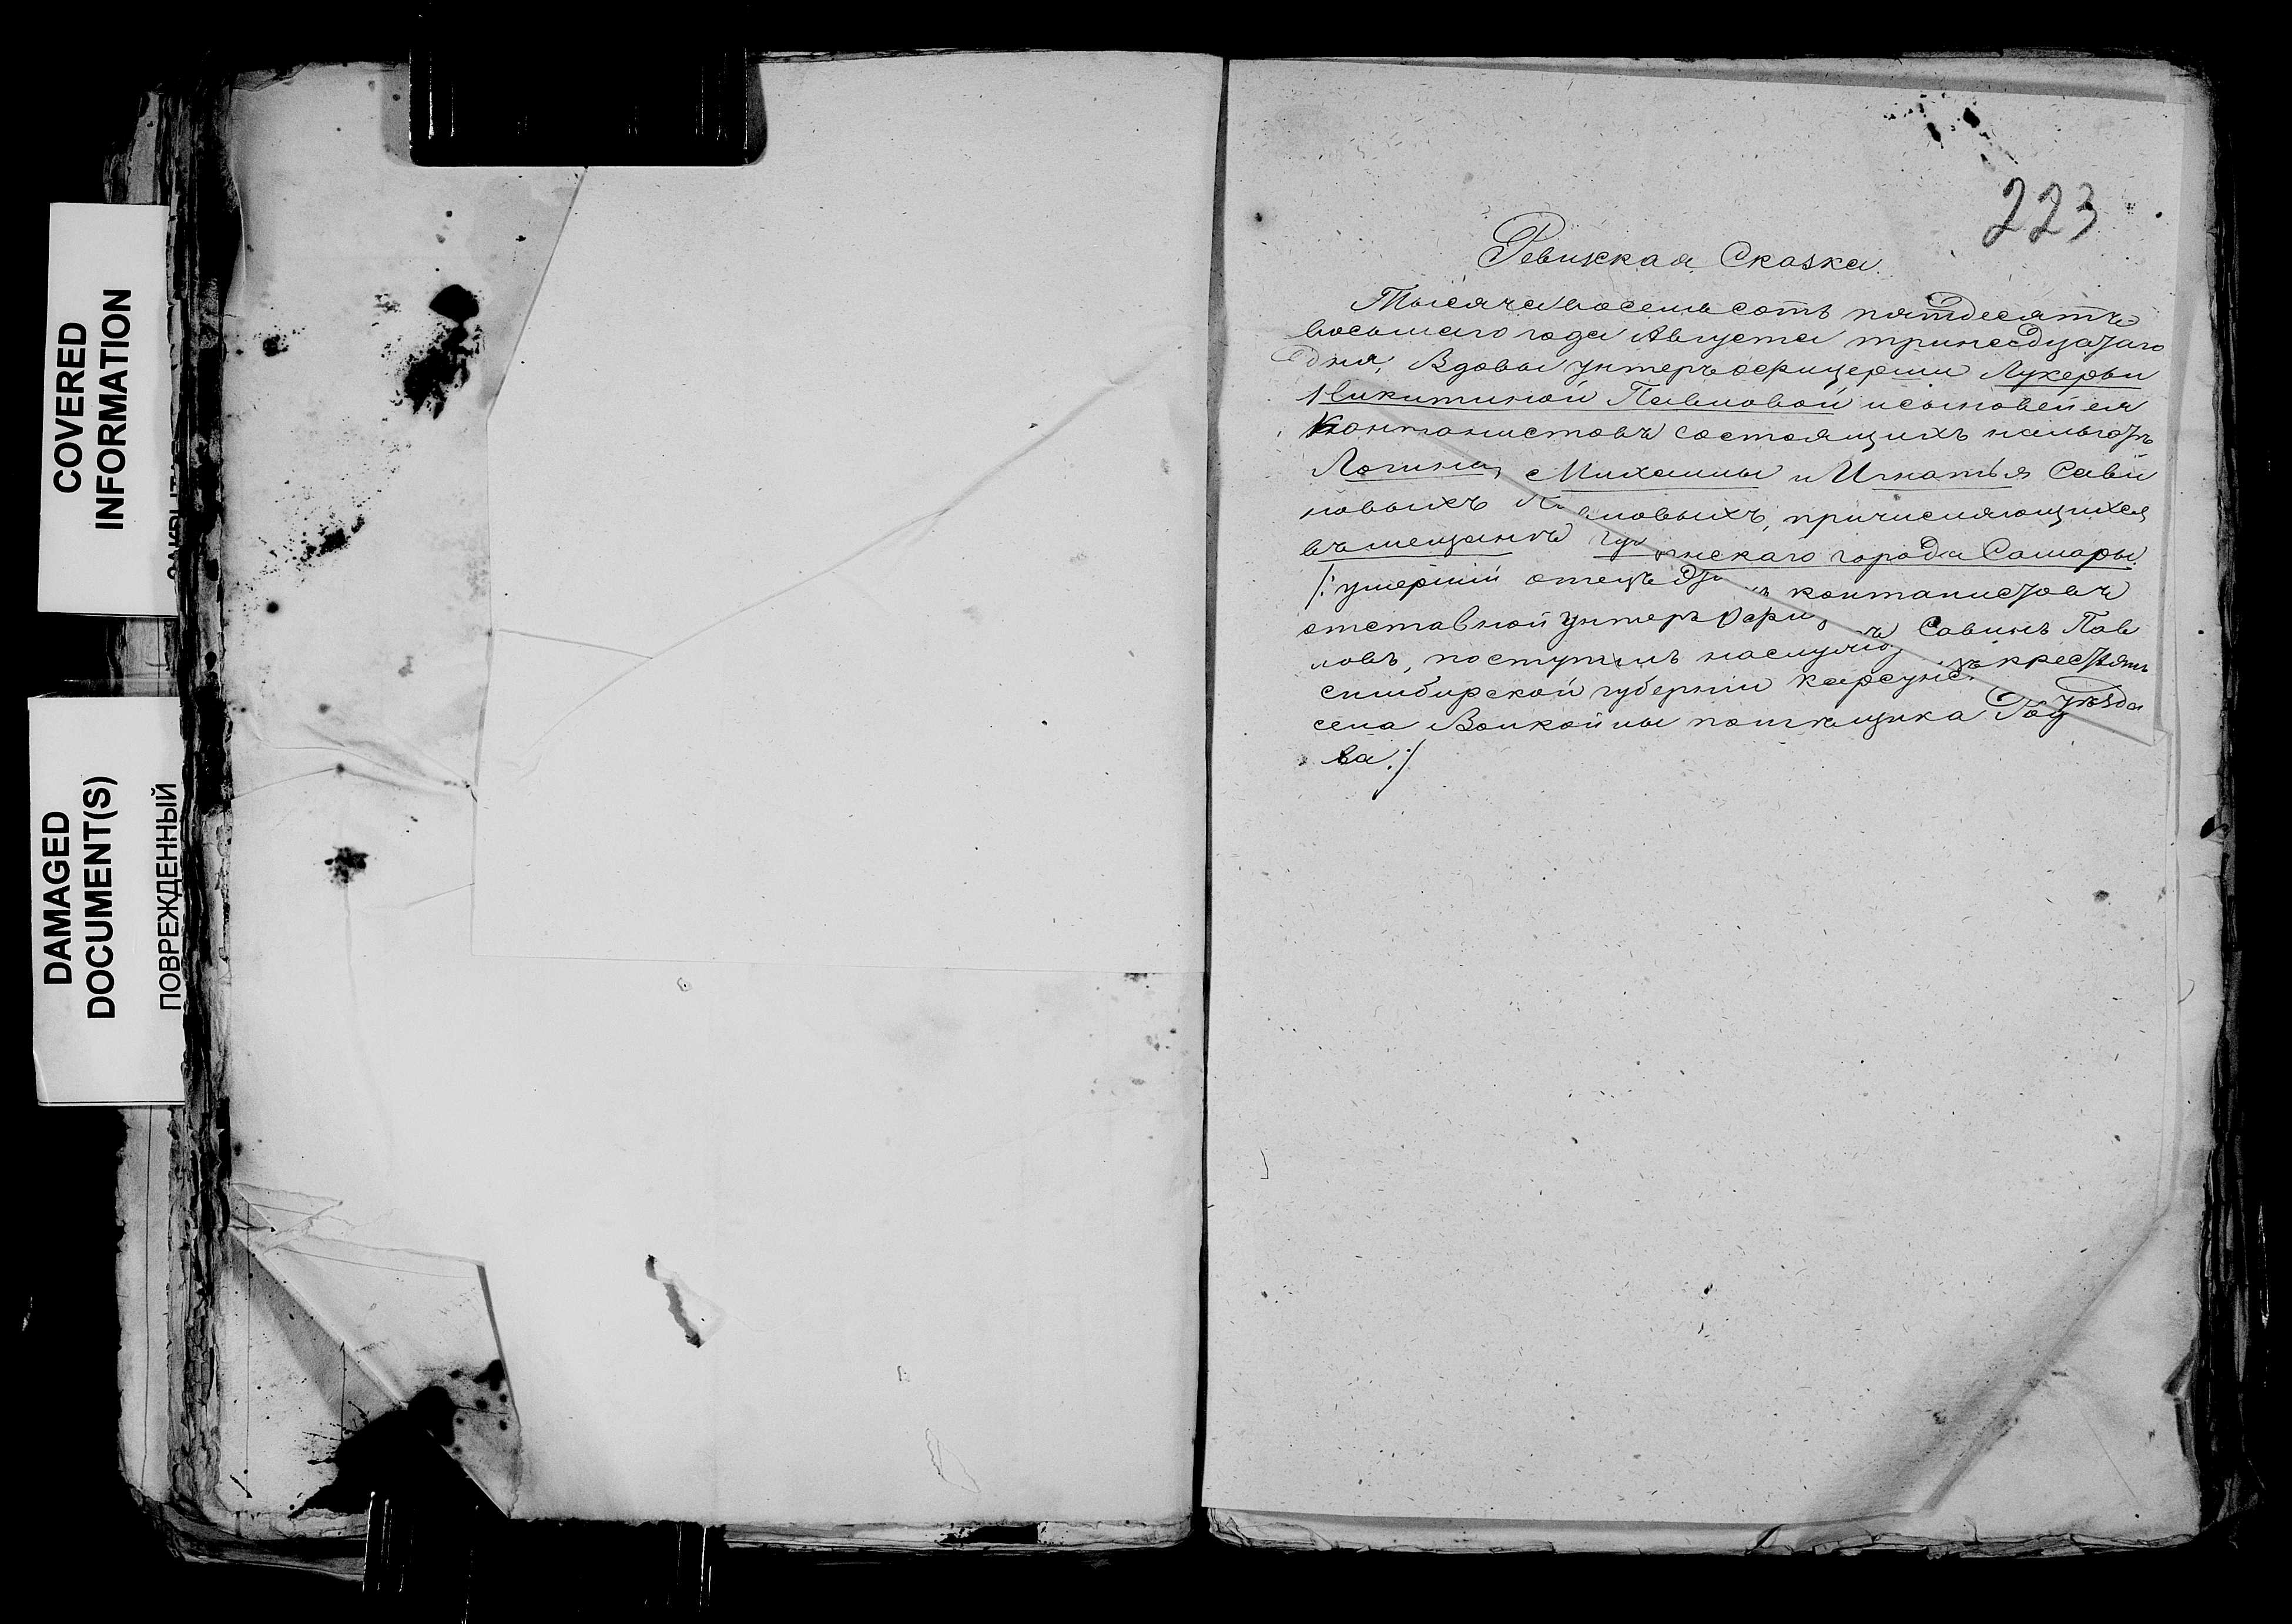 COVERED
INFORMATION
DAMAGED
DOCUMENT(S)
ПОВРЕЖДЕННЫЙ
223
Ревижская Сказка.
Тысяча восемь сотъ пятдесятъ
восьмаго года Августа тринадцатаго
дня, Вдовы унтеръ офицерши Лукерьи
Никитиной Павловой и сыновей ея
Контонистовъ состоящихъ
Логина, Михаилы и Игнатья Сави
новыхъ причисляющихся
въ мещане города Самары
/: умерший отецъ контанистовъ
отставной унтеръ Савинъ Пав
ловъ, поступилъ крестьянъ
симбирской губернии уезда
села помещика
ва :/